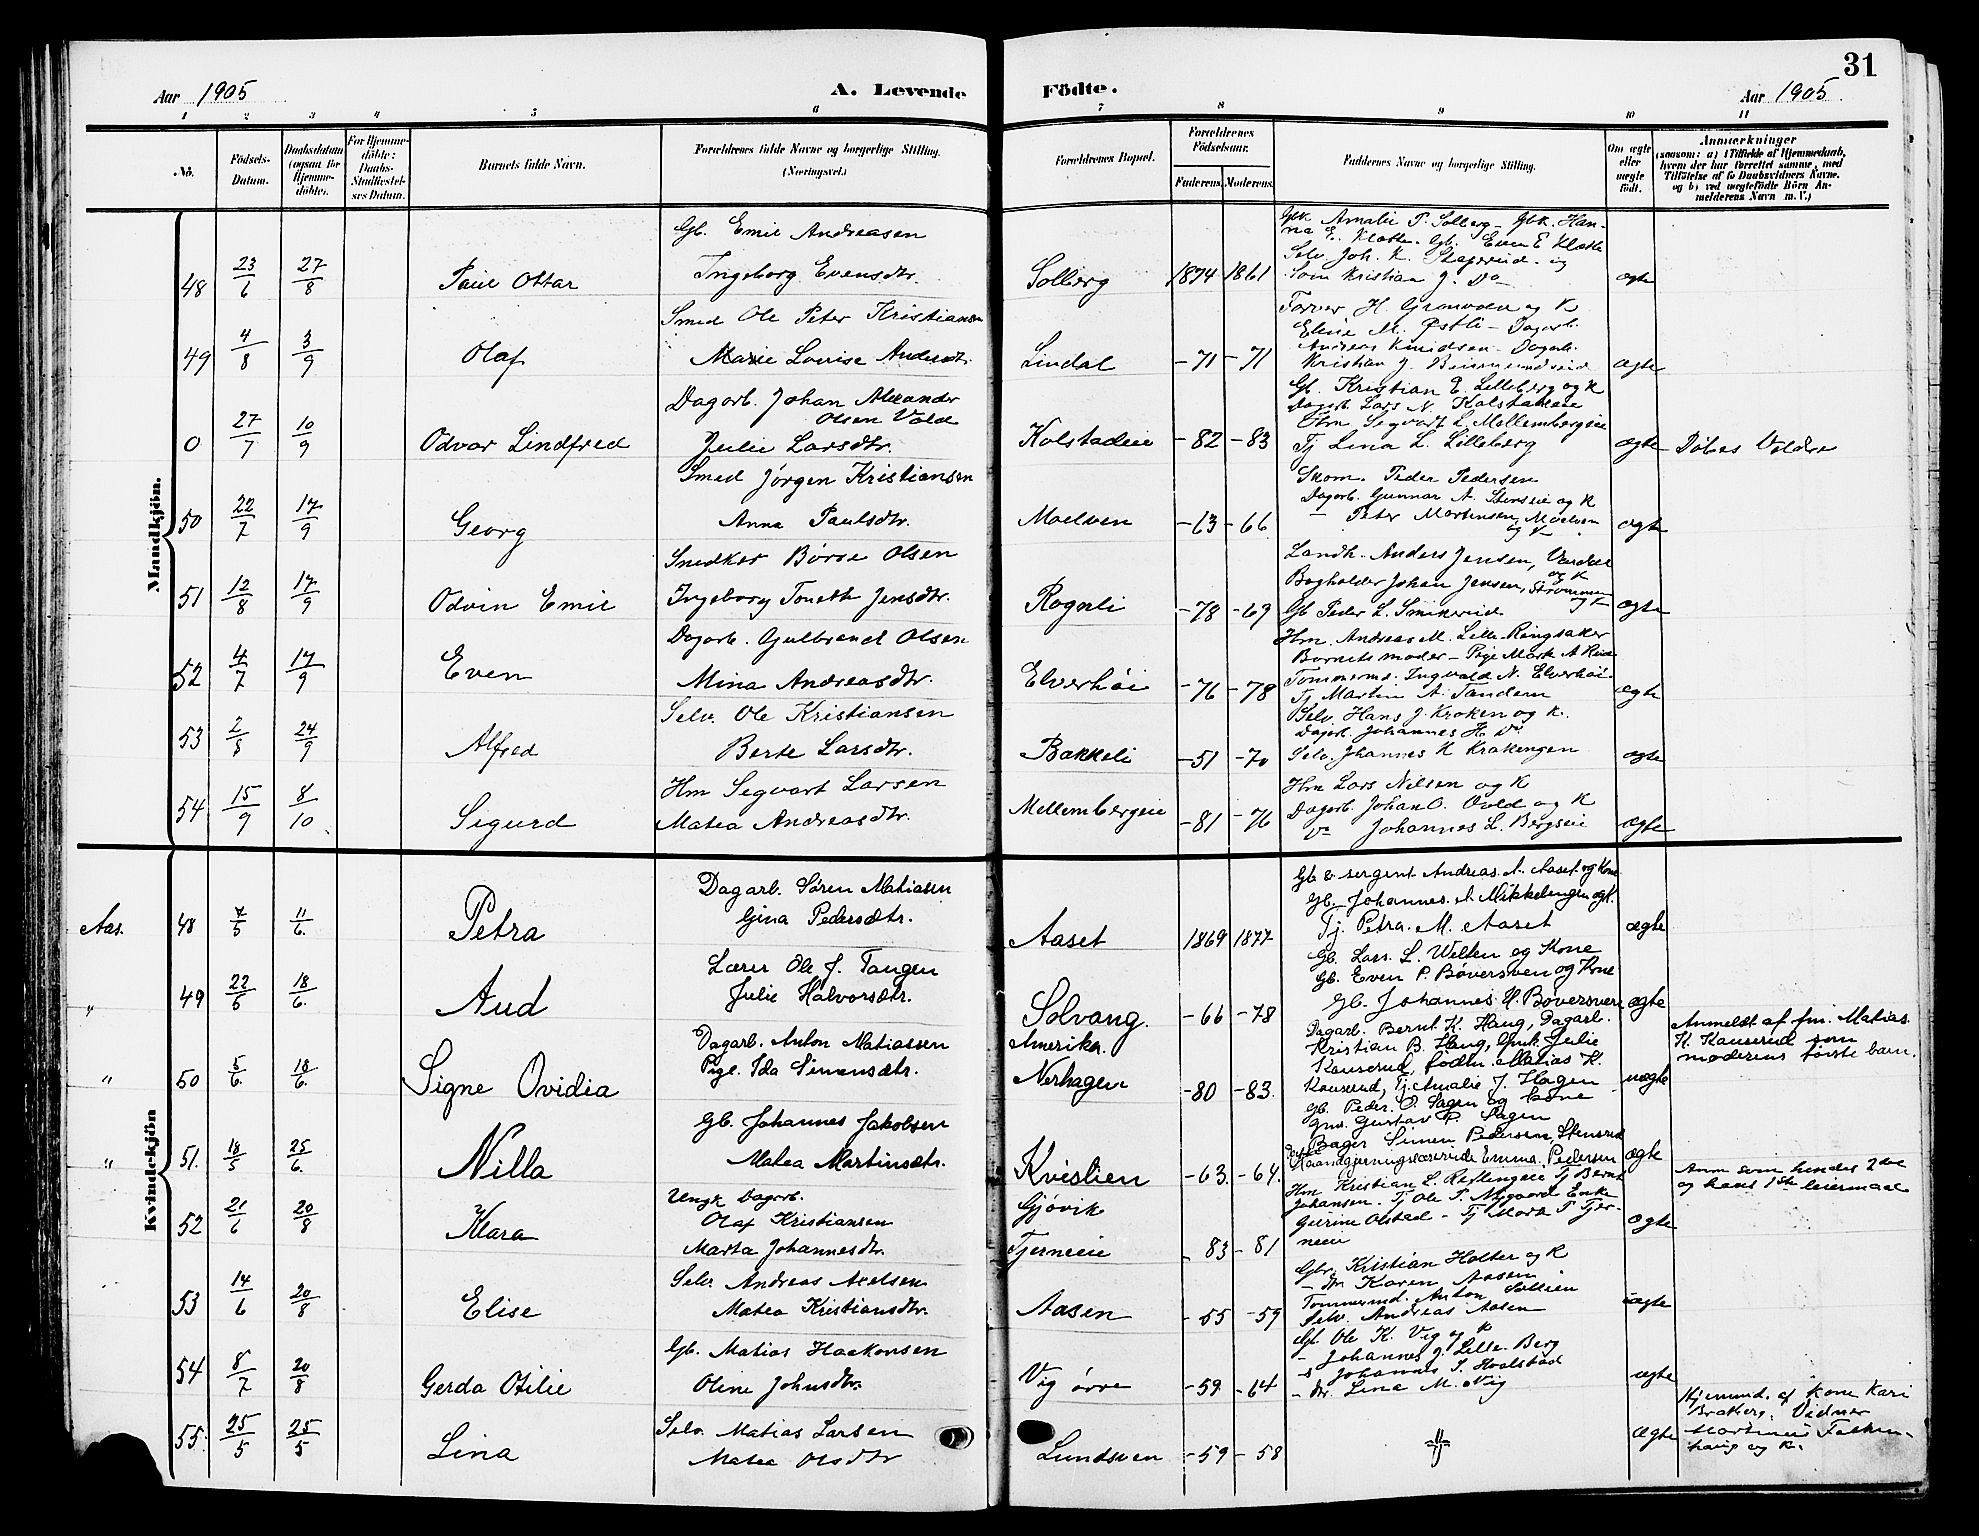 31
Aar 1905
A. Levende
Födte.
Aar 1905
1 2 3 4 5 6 7 8 9 10 11
No.
Födsels-
Datum.
Daabsdatum
(ogsaa for
Hjemme-
döbte).
For Hjemme-
döbte:
Daabs-
Stadfæstel-
ses Datum.
Barnets fulde Navn.
Forældrenes fulde Navne og borgerlige Stilling.
(Næringsvei.)
Forældrenes Bopæl.
Forældrenes
Födselsaar.
Faderens. Moderens.
Faddernes Navne og borgerlige Stilling.
Om ægte
eller
uægte
født.
Anmærkninger
(saasom: a) i Tilfælde af Hjemmedaab,
hvem der har forrettet samme, med
Tilföielse af to Daabsvidners Navne,
og b) ved uægtefödte Börn An-
melderens Navn m. V.)
Mandkjön.
Gb. Emil Andreasen
Gbk. Amalie P. Solberg - Gbk. Han-
na E. Klætte. Gb. Even E Klætte
Selv. Joh. K. og
48 23/6 27/8 Paul Ottar Ingeborg Evensdtr. Solberg 1874 1861 Søn Kristian J. Do ægte
Smed Ole Peter Kristiansen
Farver H. Granvolden og K
Dagarb.
Andreas Knudsen - Dagarb.
49 4/8 3/9 Olaf Marie Lovise Andersdtr. Lindal -71 -71 Kristian J. ægte
Dagarb. Johan Alexander
Olsen Vold
Gb. Kristian E. Lilleberg og K
Dagarb. Lars N. Kolstadeie
Segvart L. Mellembergseie
0 27/7 10/9 Odvar Lindfred Julie Larsdtr. Kolstadeie -82 -83 Tj Lina L. Lilleberg ægte Döbes Valdre
Smed Jörgen Kristiansen
Skom. Peder Pedersen
Dagarb. Gunnar A. Stenseie og K
50 22/7 17/9 Georg Anna Paulsdtr. Moelven -63 -66 - Peter Martinsen, Moelven
og K ægte
Snedker Börre Olsen
Landh. Anders Jensen, Vardal
og K
Bogholder Johan Jensen, Strömmen
og K
51 12/8 17/9 Odvin Emil Ingeborg Tonette Jensdtr. Rognli -78 -69 Gb Peder L. Smikerud ægte
Dagarb. Gulbrand Olsen
Hm. Andreas M. Lille-Ringsaker
Barnets moder - Pige Marte A
52 4/7 17/9 Even Mina Andreasdtr. Elverhöi -76 -78 Tömmerm. Ingvald N. Elverhöi.
Tj Martin A. Tandem ægte
Selv. Ole Kristiansen
Selv. Hans J. Kroken og K.
Dagarb. Johannes H. Do
53 2/8 24/9 Alfred Berte Larsdtr. Bakkeli -51 -70 Selv. Johannes K Krakengen ægte
Hm Segvart Larsen
Hm Lars Nilsen og K
Dagarb. Johan O. Vold og K
54 15/9 8/10 Sigurd Matea Andreasdtr. Mellembergseie -81 -76 Do Johannes L. Bergseie ægte
Kvindekjön
Dagarb. Sören Matiasen
Gb & sergent Andreas A. Aaset og Kone
Gb. Johannes A Mikkelengen og K.
Aas. 48 7/5 11/6. Petra Gina Pedersdtr. Aaset 1869 1877 Tj. Petra. M. Aaset ægte
Lærer Ole J. Tangen
Gb. Lars. L. Welten og Kone
Gb. Even P. Böversven og Kone
" 49 22/5 18/6. Aud Julie Halvorsdtr. Solvang. -66 -78 Gb. Johannes H. Böversven ægte
Dagarb. Anton Matiassen
Amerika.
Dagarb. Bernt K. Haug, Dagarb.
Kristian B. Haug, Gmk. Julie
Kauserud, födtm. Matias K.
Anmeldt af fm. Matias
K. Kauserud som
moderens förste barn.
" 50 5/6. 18/6. Signe Ovidia Pige Ida Simensdtr. Nerhagen -80 -83. Kauserud, Tj. Amalie J. Hagen uægte
Gb. Johannes Jakobsen
Gb. Peder. O. Sagen og Kone
Gmd. Gustav P. Sagen
Bager Simen Pedersen Stensrud
" 51. 18/5 25/6. Nilla Matea Martinsdtr. Kvislien -63. -64. Haandgjerningslærerinde Emma Pedersen ægte
Ungk Dagarb.
Gjövik
Hm Kristian L. Reflengeie Tj Bernt
Johansen. Tj Ole P. Nygaard Enke
Anm som hendes 2det
og hans 1ste leiermaal
52 21/6 20/8 Klara Olaf Kristiansen
Marta Johannesdtr. Tjerneeie -83 -81 Gurine Olstad - Tj Marta P Tjer-
neeie uægte
Selv. Andreas Axelsen
Gbr. Kristian Holter og K
- dr. Karen Aasen
Tömmermd. Anton
53 14/6 20/8 Elise Matea Kristiansdtr. Aasen -55 -59 Selv. Andreas Aasen ægte
Gb. Matias Haakonsen
Gb. Ole K. Vig og K
- Johannes J. Lille-Berg
s Johannes S.
54 8/7 20/8 Gerda Otilie Oline Johnsdtr. Vig övre -59 -64 - dr. Lina M. Vig ægte
Selv. Matias Larsen
Hjemmd. af Kone Kari
Braberg, Vidner
55. 25/5 25/5 Lina Matea Olsdtr Lundsven -59 -58 ægte Martinus Falken-
haug og K.